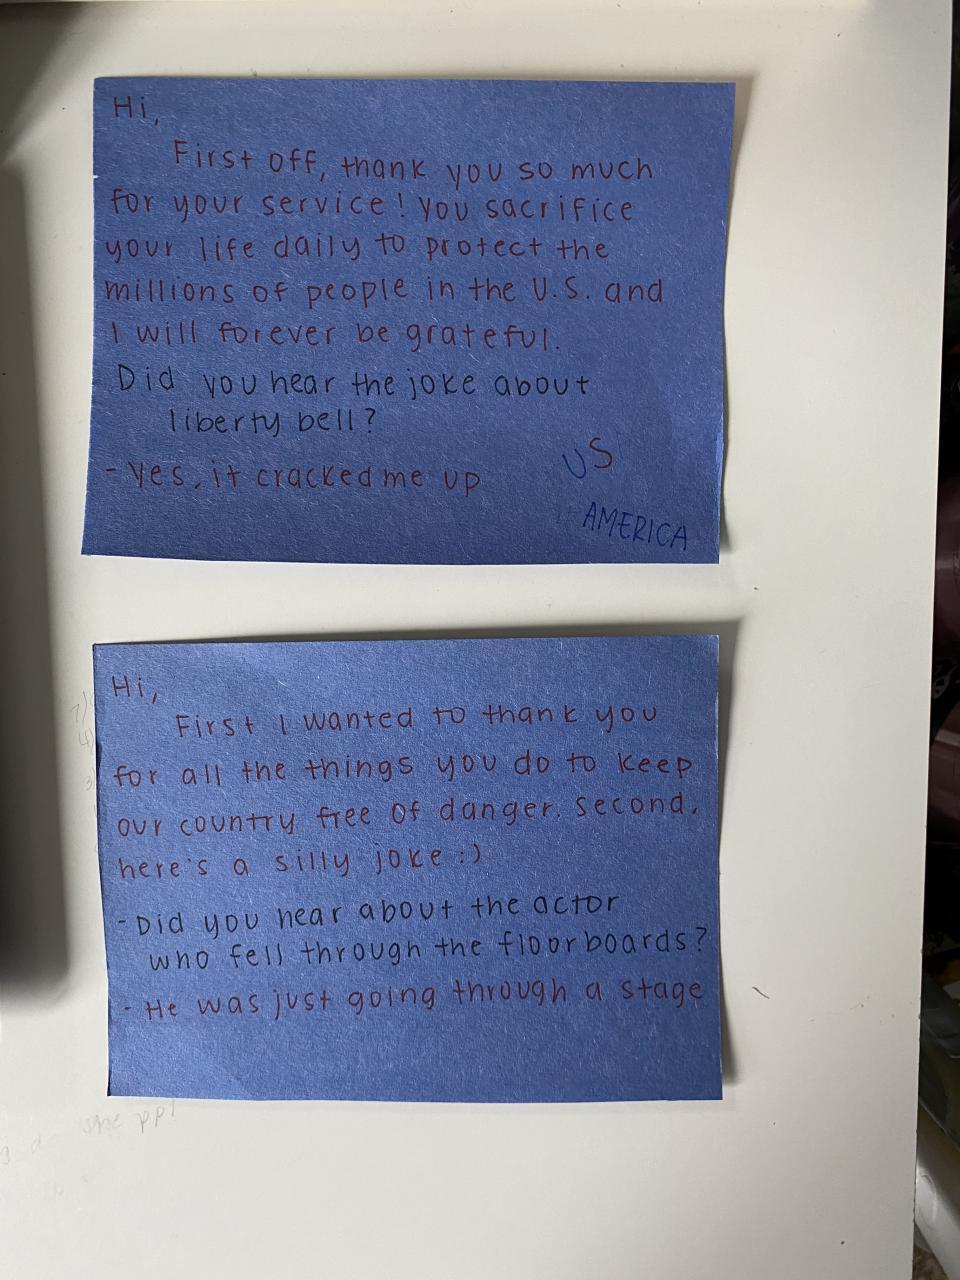 Hi,
First off, thank you so much
for your service! You sacrifice
your life daily to protect the
millions of people in the U.S. and
I will forever be grateful.
Did you hear the joke about
liberty bell?
- Yes, it cracked me up
US
AMERICA
Hi,
First I wanted to thank you
for all the things you do to keep
our country free of danger. Second,
here's a silly joke :)
- Did you hear about the actor
who fell through the floorboards?
- He was just going through a stage